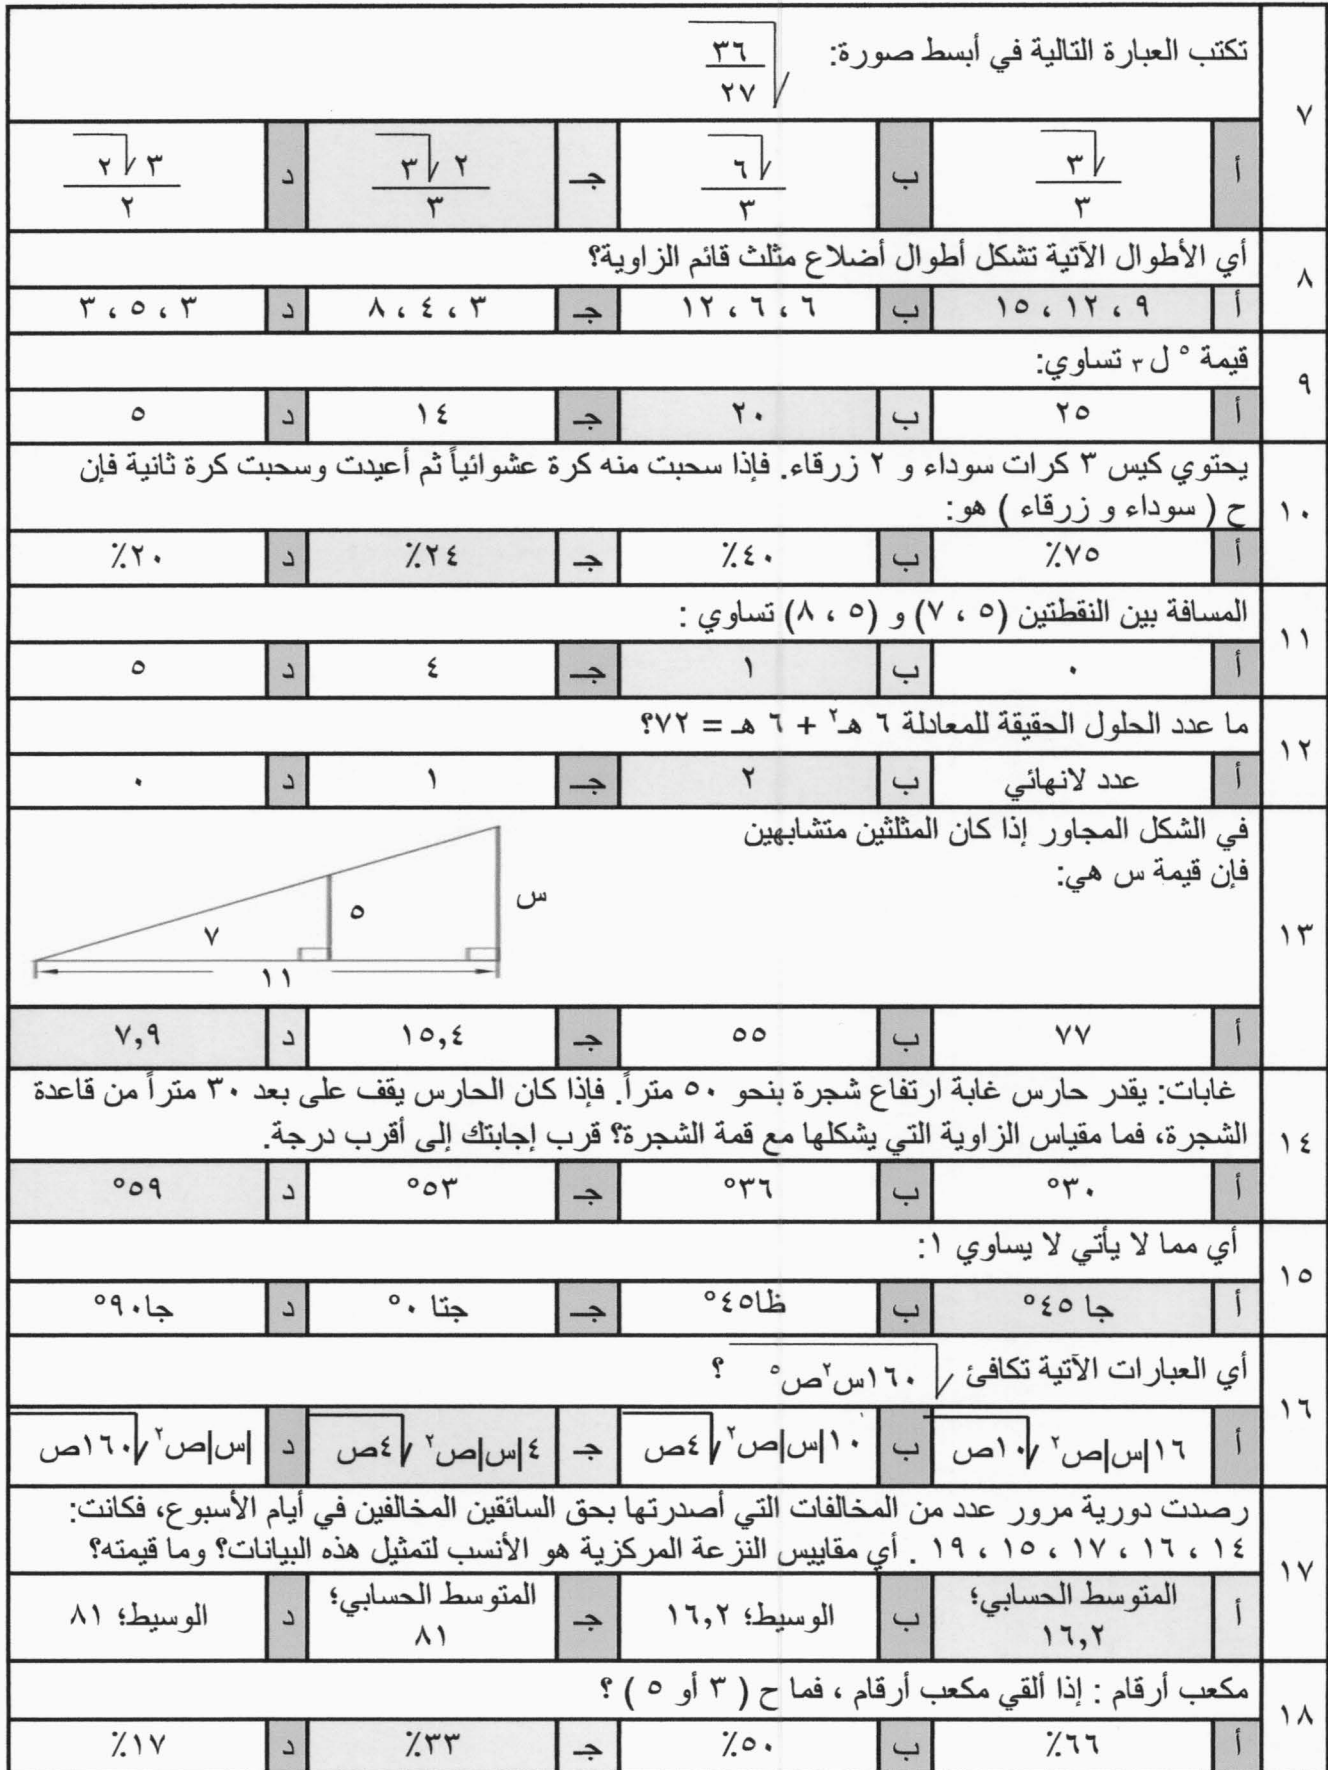 ٧
تكتب العبارة التالية في أبسط صورة: √(٣٦/٢٧)
أ √٣/٣ ب √٦/٣ جـ ٢√٣/٣ د ٣√٢/٢
٨
أي الأطوال الآتية تشكل أطوال أضلاع مثلث قائم الزاوية؟
أ ٩ ، ١٢ ، ١٥ ب ٦ ، ٦ ، ١٢ جـ ٣ ، ٤ ، ٨ د ٣ ، ٥ ، ٣
٩
قيمة ° ل ٣ تساوي:
أ ٢٥ ب ٢٠ جـ ١٤ د ٥
١٠
يحتوي كيس ٣ كرات سوداء و ٢ زرقاء. فإذا سحبت منه كرة عشوائياً ثم أعيدت وسحبت كرة ثانية فإن
ح ( سوداء و زرقاء ) هو:
أ ٧٥٪ ب ٤٠٪ جـ ٢٤٪ د ٢٠٪
١١
المسافة بين النقطتين (٥ ، ٧) و (٥ ، ٨) تساوي :
أ ٠ ب ١ جـ ٤ د ٥
١٢
ما عدد الحلول الحقيقة للمعادلة ٦ هـ² + ٦ هـ = ٧٢؟
أ عدد لانهائي ب ٢ جـ ١ د ٠
١٣
في الشكل المجاور إذا كان المثلثين متشابهين
فإن قيمة س هي:
س
٥
٧
١١
أ ٧٧ ب ٥٥ جـ ١٥,٤ د ٧,٩
١٤
غابات: يقدر حارس غابة ارتفاع شجرة بنحو ٥٠ متراً. فإذا كان الحارس يقف على بعد ٣٠ متراً من قاعدة
الشجرة، فما مقياس الزاوية التي يشكلها مع قمة الشجرة؟ قرب إجابتك إلى أقرب درجة.
أ ٣٠° ب ٣٦° جـ ٥٣° د ٥٩°
١٥
أي مما لا يأتي لا يساوي ١:
أ جا ٤٥° ب ظا٤٥° جـ جتا ٠° د جا٩٠°
١٦
أي العبارات الآتية تكافئ √(١٦٠س²ص⁵) ؟
أ ١٦|س|ص² √١٠ص ب ١٠|س|ص² √٤ص جـ ٤|س|ص² √٤ص د |س|ص² √١٦٠ص
١٧
رصدت دورية مرور عدد من المخالفات التي أصدرتها بحق السائقين المخالفين في أيام الأسبوع، فكانت:
١٤ ، ١٦ ، ١٧ ، ١٥ ، ١٩ . أي مقاييس النزعة المركزية هو الأنسب لتمثيل هذه البيانات؟ وما قيمته؟
أ المتوسط الحسابي؛ ١٦,٢ ب الوسيط؛ ١٦,٢ جـ المتوسط الحسابي؛ ٨١ د الوسيط؛ ٨١
١٨
مكعب أرقام : إذا ألقي مكعب أرقام ، فما ح ( ٣ أو ٥ ) ؟
أ ٦٦٪ ب ٥٠٪ جـ ٣٣٪ د ١٧٪